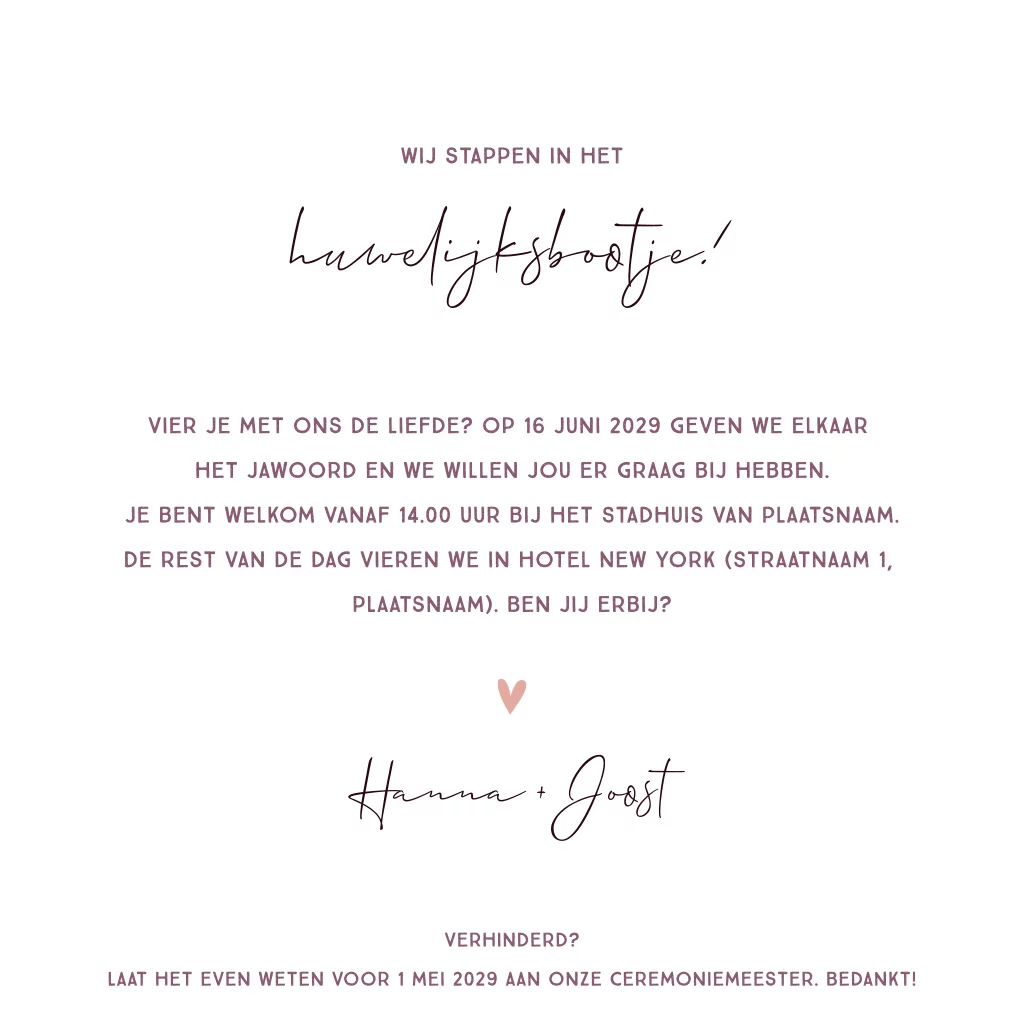 WIJ STAPPEN IN HET
huwelijksbootje!
VIER JE MET ONS DE LIEFDE? OP 16 JUNI 2029 GEVEN WE ELKAAR
HET JAWOORD EN WE WILLEN JOU ER GRAAG BIJ HEBBEN.
JE BENT WELKOM VANAF 14.00 UUR BIJ HET STADHUIS VAN PLAATSNAAM.
DE REST VAN DE DAG VIEREN WE IN HOTEL NEW YORK (STRAATNAAM 1,
PLAATSNAAM). BEN JIJ ERBIJ?
Hanna + Joost
VERHINDERD?
LAAT HET EVEN WETEN VOOR 1 MEI 2029 AAN ONZE CEREMONIEMEESTER. BEDANKT!